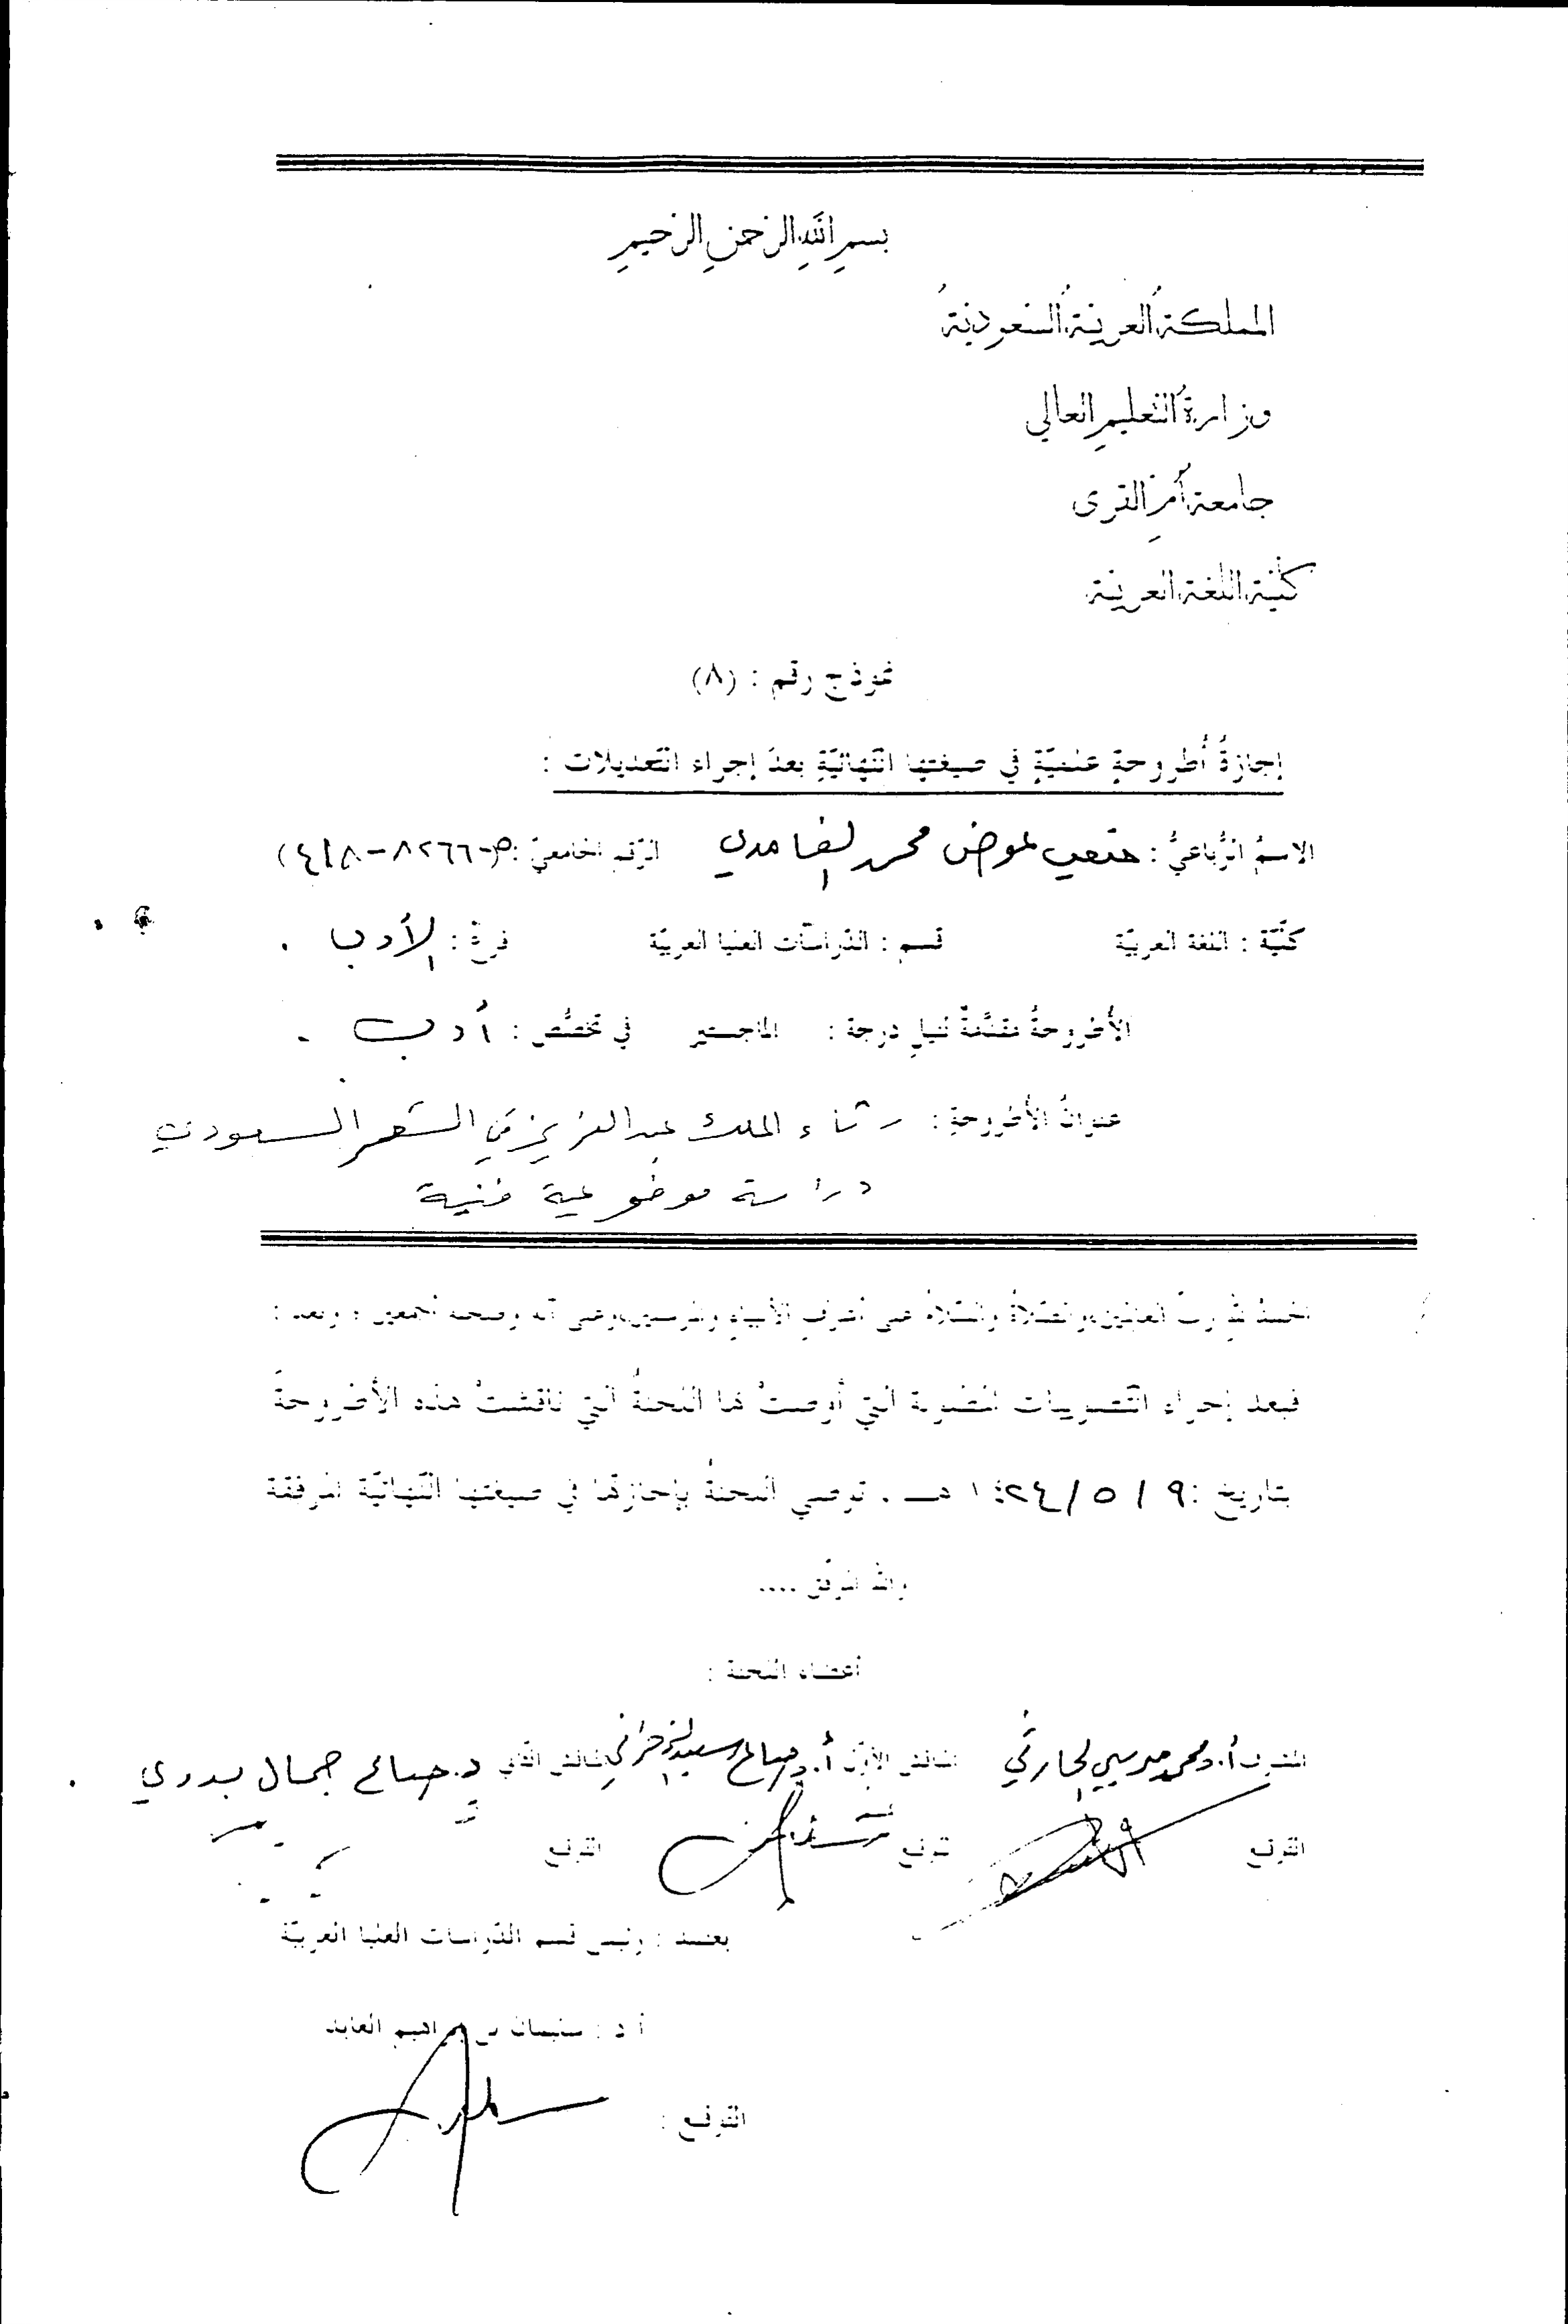 بسم الله الرحمن الرحيم
المملكة العربية السعودية
وزارة التعليم العالي
جامعة أم القرى
كلية اللغة العربية
نموذج رقم : (٨)
إجازةُ أُطروحةٍ علميّةٍ في صيغتها النّهائيّةِ بعدَ إجراء التّعديلات :
الاسمُ الرُّباعيُّ : متعب عوض محمد الغامدي الرّقم الجامعيّ : (٤١٨-٨٢٦٦-
كلّيّة : اللغة العربيّة قسم : الدّراسات العليا العربيّة فرع : الأدب .
الأطروحةُ مقدَّمةٌ لنيلِ درجة : الماجستير في تخصُّص : أدب .
عنوانُ الأطروحةِ : رثاء الملك عبدالعزيز في الشعر السعودي
دراسة موضوعية فنية
الحمدُ للهِ ربِّ العالمين، والصّلاةُ والسّلامُ على أشرفِ الأنبياءِ والمرسلين، وعلى آله وصحبه أجمعين ، وبعد :
فبعد إجراء التّصويبات المطلوبة التي أوصتْ بها اللجنةُ التي ناقشتْ هذه الأطروحةَ
بتاريخ : ٩ / ٥ / ١٤٢٤ هـ . توصي اللجنةُ بإجازتها في صيغتها النّهائيّة المرفقة
والله الموفّق ....
أعضاء اللجنة :
المشرف أ.د. محمد مريسي الحارثي المناقش الأوّل أ.د. صالح سعيد الزهراني المناقش الثّاني د. صالح جمال بدوي .
التوقيع التوقيع التوقيع
يعتمد : رئيس قسم الدّراسات العليا العربيّة
أ د : سليمان بن إبراهيم العايد
التوقيع :